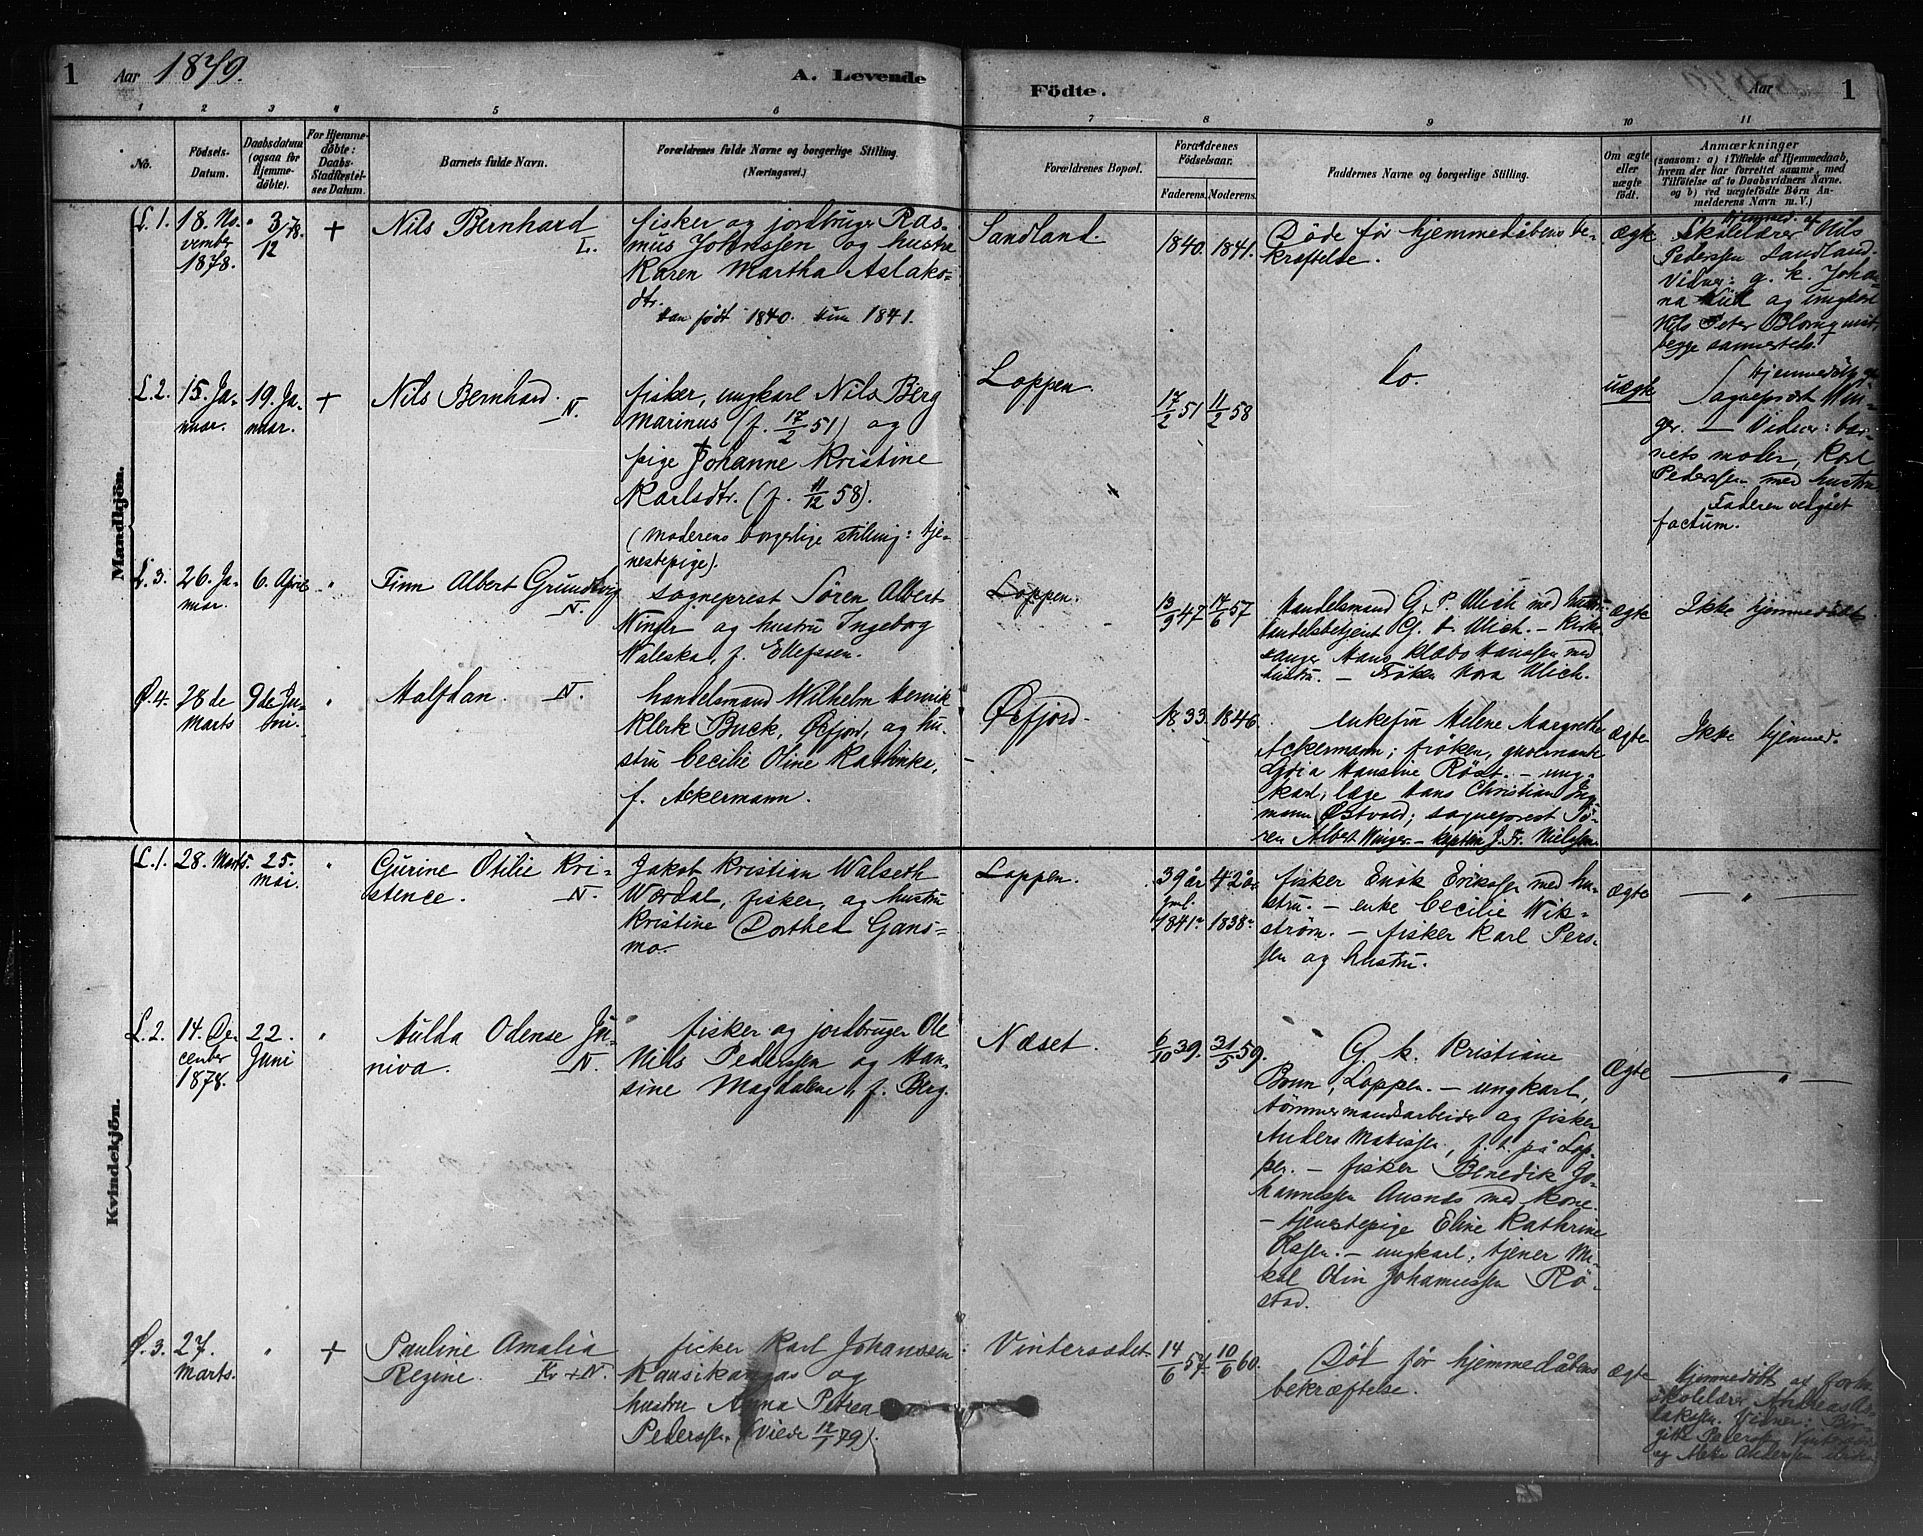 1 Aar 1879. A. Levende Födte. Aar 1
1 2 3 4 5 6 7 8 9 10 11
No.
Födsels-
Datum.
Daabsdatum
(ogsaa for
Hjemme-
døbte).
For Hjemme-
døbte:
Daabs-
Stadfæstel-
ses Datum.
Barnets fulde Navn.
Forældrenes fulde Navne og borgerlige Stilling
(Næringsvei.)
Forældrenes Bopæl.
Forældrenes
Födselsaar.
Faderens. Moderens.
Faddernes Navne og borgerlige Stilling.
Om ægte
eller
uægte
født.
Anmærkninger
(saasom: a) i Tilfælde af Hjemmedaab,
hvem der har forrettet samme, med
Tilföielse af to Daabsvidners Navne.
og b) ved uægtefödte Børn An-
melderens Navn m. V.)
Mandkjön.
L. 1.
18. No-
vember
1878.
" 3/12 78.
+
Nils Bernhard
L.
fisker og jordbruger Ras-
mus Johnssen og hustru
Karen Martha Aslaks-
dtr.
Han født 1840. Hun 1841.
Sandland.
1840. 1841.
Døde før hjemmedåbens be-
kræftelse.
ægte
hjemmed. af
Skolelærer Nils
Pederssen Sandland.
Vidner: g. k. Joha-
na og ungkarl
Nils Peter Blomquist,
begge sammesteds.
L. 2.
15. Ja-
nuar.
19. Ja-
nuar.
+
Nils Bernhard.
N.
fisker, ungkarl Nils Berg
Marinus (f. 17/2 51) og
pige Johanne Kristine
Karlsdtr. (f. 11/12 58).
(Moderens borgerlige stilling: tje-
nestepige).
Loppen.
17/2 51 11/2 58
do.
uægte
hjemmedöbt af
Sogneprest Win-
ger. — Vidner: bar-
nets moder, Karl
Pederssen med hustru
Faderen vedgået
factum.
L. 3.
26. Ja-
nuar.
6. April
"
Finn Albert Grundtvig
N.
sogneprest Søren Albert
Winger og hustru Ingeborg
Waleska, f. Ellefssen.
Loppen.
13/9 47 17/6 57
Handelsmand G. P. Ulich med hustru
handelsbetjent G. Ulich. — Kirke-
sanger Hans Klæbo Hanssen med
hustru. — Frøken Nora Ulich.
ægte
Ikke hjemmedöbt
Ø. 4.
28de
Marts
9de Ju-
ni.
"
Halfdan
N.
handelsmand Wilhelm Henrik
Klerk Buck, Øefjord, og hu-
stru Cecilie Oline Kathinka,
f. Ackermann.
Øefjord.
1833. 1846
enkefru Helene Margrethe
Ackermann; frøken, guvernante
Lydia Hansine Røst. — ung-
karl, læge Hans Christian Ing-
mann Østvold; sogneprest Sø-
ren Albert Winger — kaptein J. Fr. Nielssen.
ægte
Ikke hjemmed.
Kvindekjön.
L. 1.
28. Marts.
25.
mai.
"
Gurine Otilie Kri-
stence.
N.
Jakob Kristian Walseth
Wærdal, fisker, og hustru
Kristine Dorthea Gans-
mo.
Loppen.
39 år 42 år
gml.
1841 1838
fisker Enok Erikssen med hu-
stru. — enke Cecilie Wik-
strøm. — fisker Karl Pers-
sen og hustru.
ægte
— " —
L. 2.
14. De-
cember
1878.
22.
Juni
"
Hulda Odense Ju-
niva.
N.
fisker og jordbruger Ole
Nils Pederssen og Han-
sine Magdalene, f. Berg.
Næset.
6/10 39. 31/5 59.
G. k. Kristiane
Bonn, Loppen. — ungkarl,
tømmermandsarbeider og fisker
Anders Matissen, f. t. på Lop-
pen. — fisker Benedik Jo-
hannessen Ausnæs med kone.
— tjenestepige Eline Kathrine
Olssen. — ungkarl, tjener Mi-
kal Odin Johannessen Rö-
stad.
ægte
— " —
Ø. 3.
27.
Marts.
"
+
Pauline Amalia
Regine.
Kv + N.
fisker Karl Johanssen
Kausikangas og
hustru Anna Petrea
Pederssen (viede 12/1 79).
Vintersædet.
14/6 57. 10/6 60.
Død før hjemmedåbens
bekræftelse.
ægte
Hjemmedöbt af forh.
skolelærer Andreas As-
lakssen. Vidner: Bir-
gitte Pederssen Vintersæt
og Mette Anderssen